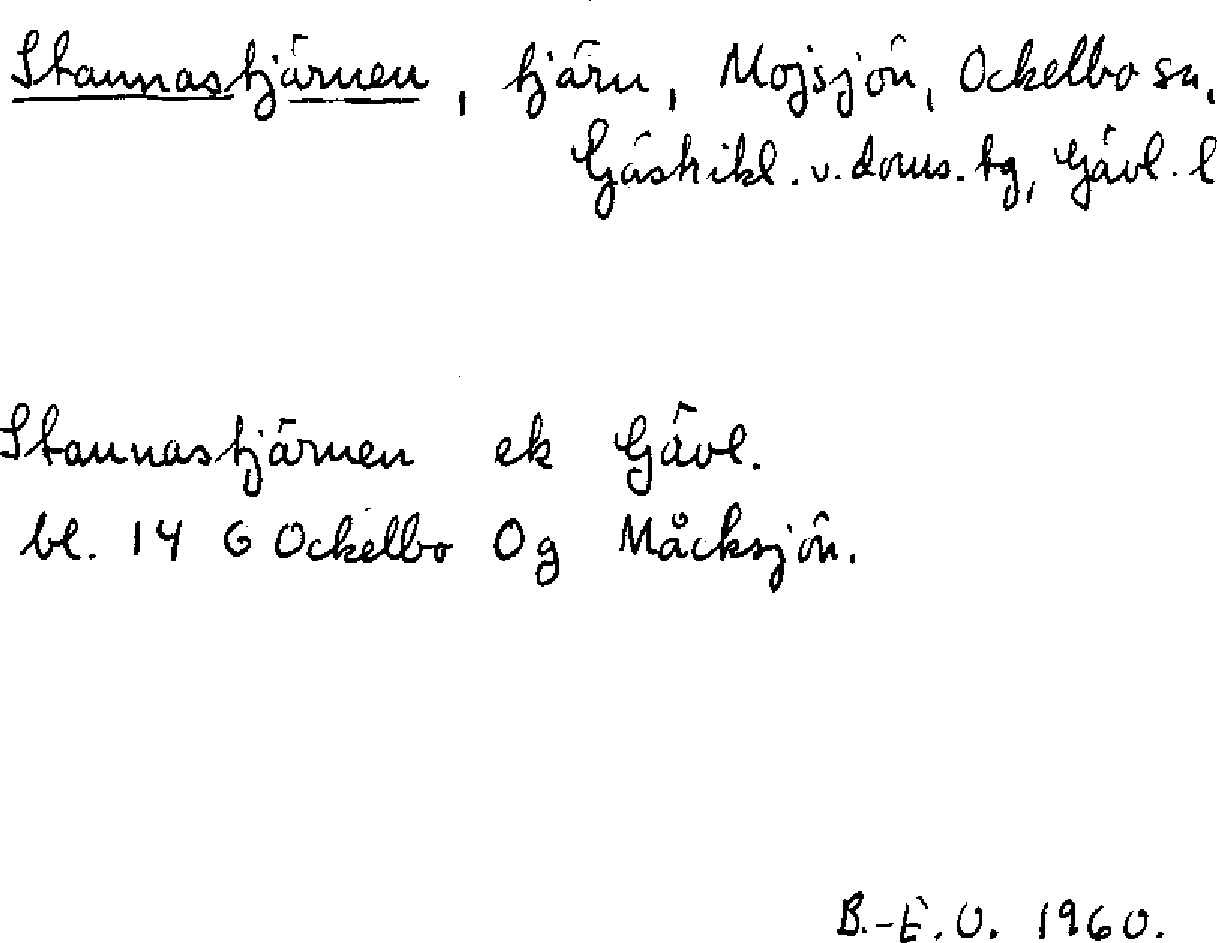 Stannastjärnen, tjärn, Mojsjön, Ockelbo sn,
Gästrikl. v. doms. tg, Gävl. l
Stannastjärnen ek Gävl.
bl. 14 G Ockelbo 0g Måcksjön.
B.-E.O. 1960.